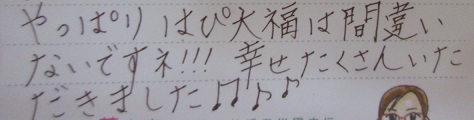 やっぱり はぴ大福は間違い
ないですネ!!! 幸せたくさんいた
だきました♫♪♪